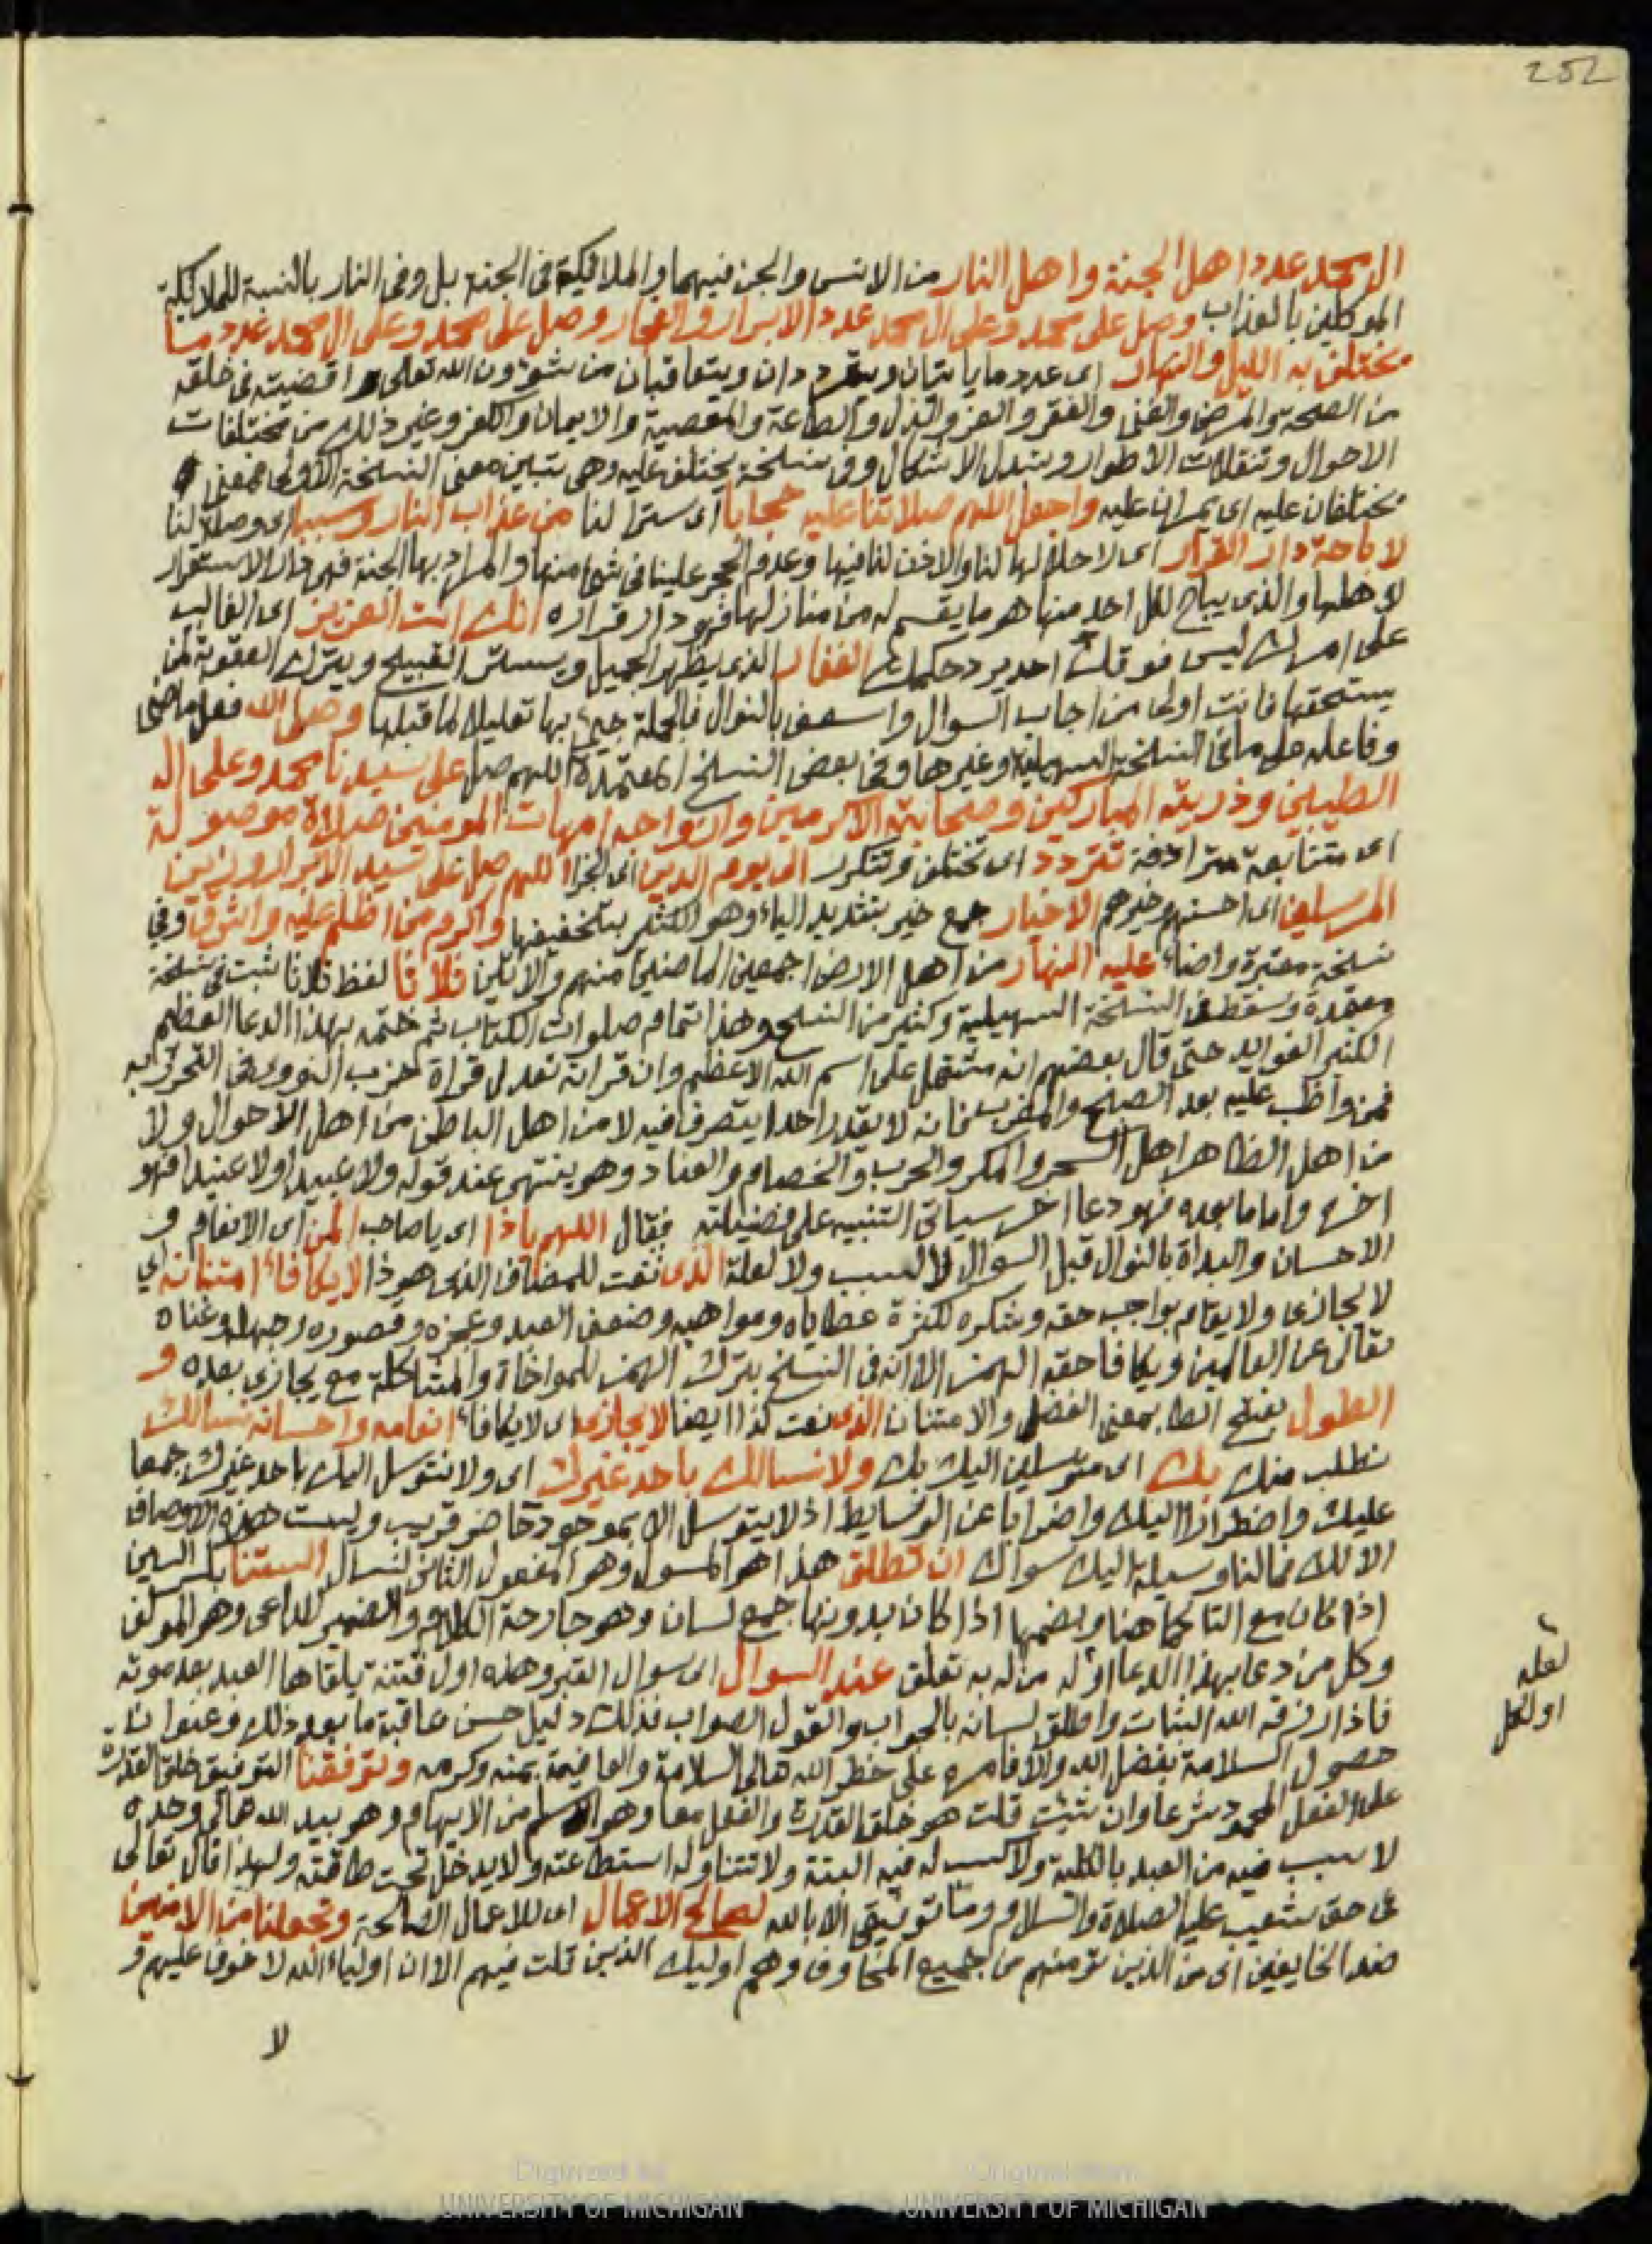 252
ال محمد عدد اهل الجنة واهل النار من الانس والجن فيهما والملائكة في الجنة بل وفي النار بالنسبة للملائكة
الموكلين بالعذاب وصل على محمد وعلى ال محمد عدد الابرار والفجار وصل على محمد وعلى ال محمد عدد ما
يختلف به الليل والنهار اى عدد ما ياتيان ويترددان ويتعاقبان من شؤون الله تعالى واقضيته في خلقه
من الصحة والمرض والغنى والفقر والعز والذل والطاعة والمعصية والايمان والكفر وغير ذلك من مختلفات
الاحوال وتنقلات الاطوار وتبدل الاشكال وفي نسخة يختلف عليه وهى تبين معنى النسخة الاولى بمعنى
يختلفان عليه اى يمران عليه واجعل اللهم صلاتنا عليه حجابا اى سترا لنا من عذاب النار وسببا اى وصلة لنا
لاباحة دار القرار اى لاحلالها لنا والاذن لنا فيها وعدم الحجر علينا في شئ منها والمراد بها الجنة فهى دار الاستقرار
لاهلها والذى يباح لكل احد منها هو ما يقسم له من منازلها فهو دار قراره انك انت العزيز اى الغالب
على امرك ليس فوقك احد يرد حكمك الغفار الذى يظهر الجميل ويستر القبيح ويترك العقوبة لمن
يستحقها فانت اولى من اجاب السوال واسعف بالنوال فالجملة جئ بها تعليلا لما قبلها وصلى الله فعل ماضى
وفاعله على ما في النسخة السهيلية وغيرها وفي بعض النسخ المعتمدة اللهم صل على سيدنا محمد وعلى اله
الطيبين وذريته المباركين وصحابته الاكرمين وازواجه امهات المومنين صلاة موصولة
اى متتابعة مترادفة تتردد اى تختلف وتتكرر الى يوم الدين اى الجزا اللهم صل على سيد الابرار وزين
المرسلين اى احسنهم وخيرهم الاخيار جمع خير بتشديد الياء وهو الكثير بتخفيفها واكرم من اظلم عليه واشرق وفي
نسخة معتبرة واضاء عليه النهار من اهل الارض اجمعين الماضين منهم والاتين ثلاثا لفظ ثلاثا ثبت في نسخة
معتمدة وسقط في النسخة السهيلية وكثير من النسخ وهذا تمام صلوات الكتاب ثم ختمه بهذا الدعا العظيم
الكثير الفوايد حتى قال بعضهم انه مشتمل على اسم الله الاعظم وان قراته تعدل قراة حزب النووى في التحرز به
فمن واظب عليه بعد الصبح والمغرب فانه لا يقدر احد ان يتصرف فيه لا من اهل الباطن من اهل الاحوال ولا
من اهل الظاهر اهل السحر والمكر والحرب والخصام والعناد وهو ينتهى عند قوله ولا عبيدا ولا عنيدا فهو
اخره واما ما بعده فهو دعا اخر سياتى التنبيه على فضيلته فقال اللهم ياذا اى يا صاحب المن اى الانعام و
الاحسان والبداة بالنوال قبل السوال لا لسبب ولا لعلة الذى نعت للمضاف الذى هو ذا لا يكافا امتنانه اى
لا يجازى ولا يقام بواجب حقه وشكره لكثرة عطاياه ومواهبه وضعف العبد وعجزه وقصوره وجهله وغناه
تعالى عن العالمين ويكافا حقه الهمز الا انه في النسخ بترك الهمز للمواخاة والمشاكلة مع يجازى بعده و
الطول بفتح الطا بمعنى الفضل والامتنان الذى نعت لذا ايضا لا يجازى اى لا يكافا انعامه واحسانه نسالك
نطلب منك بك اى متوسلين اليك بك ولا نسالك باحد غيرك اى ولا نتوسل اليك باحد غيرك جمعا
عليك واضطرارا اليك واضرابا عن الوسايط اذ لا يتوسل الا بموجود حاضر قريب وليست هذه الاوصاف
الا لك فما لنا وسيلة اليك سواك ان تطلق هذا هو المسول وهو المفعول الثانى لنسال السنتنا بكسر السين
اذا كان مع التا كما هنا وبضمها اذا كان بدونها جمع لسان وهو جارحة الكلام والضمير للداعى وهو المولف
وكل من دعا بهذا الدعا او له من له به تعلق عند السوال اى سوال القبر وهذه اول فتنة يلقاها العبد بعد موته
فاذا رزقه الله الثبات واطلق لسانه بالجواب والقول الصواب فذلك دليل حسن عاقبة ما بعد ذلك وعنوان
حصول السلامة بفضل الله والا فامره على خطر الله هالى السلامة والعافية بمنه وكرمه وتوفقنا التوفيق خلق القدرة
على الفعل المحمود شرعا وان شئت قلت هو خلق القدرة والفعل معا وهو اسلم من الايهام وهو بيد الله هالى وحده
لا سبب فيه من العبد بالكلية ولا كسب له فيه البتة ولا تتناوله استطاعته ولا يدخل تحت طاقته ولهذا قال تعالى
في حق شعيب عليه الصلاة والسلام وما توفيقى الا بالله لصالح الاعمال اى للاعمال الصالحة وتجعلنا من الامنين
ضد الخايفين اى من الذين تؤمنهم من جميع المخاوف وهم اوليك الذين قلت فيهم الا ان اولياء الله لا خوف عليهم و
لا
لعله
او لكل
Digitized by
UNIVERSITY OF MICHIGAN
Original from
UNIVERSITY OF MICHIGAN